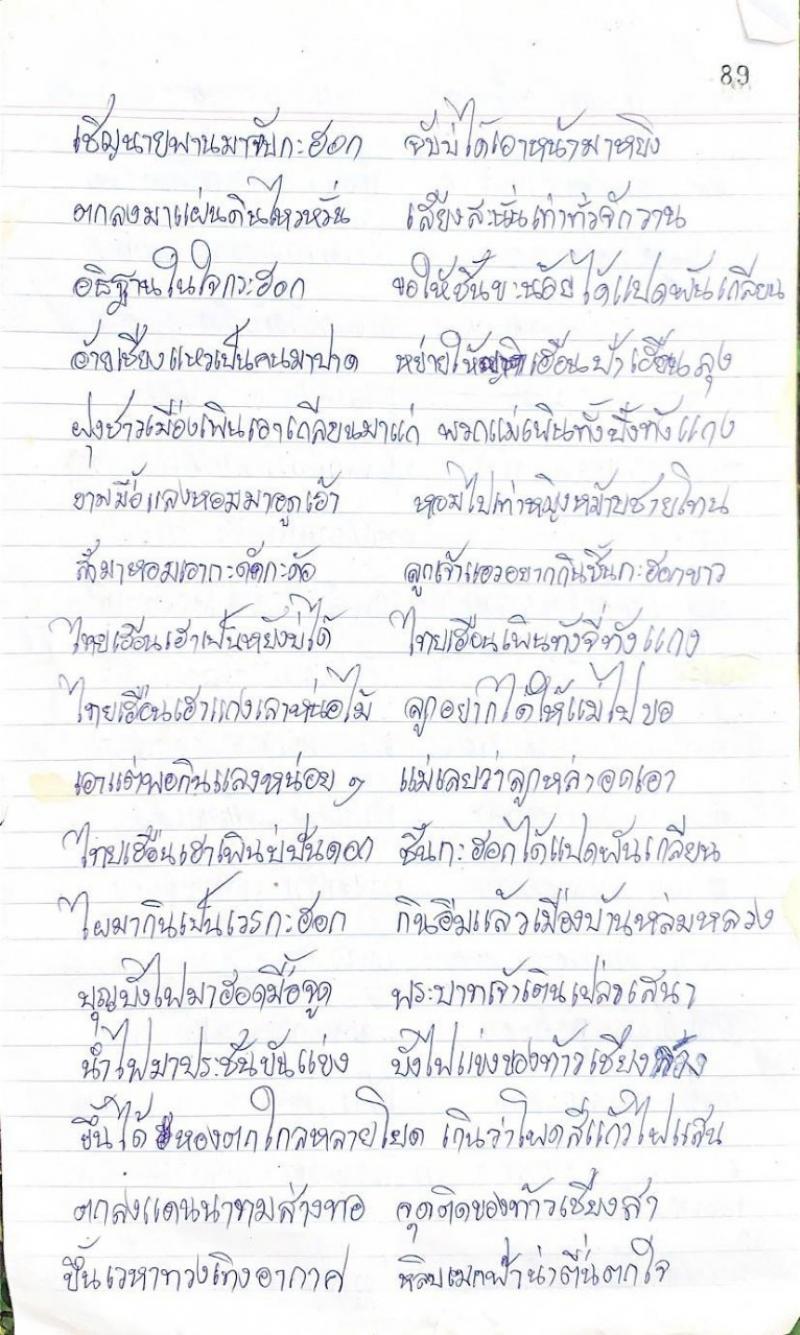 89
เชิญนายพานมาจับกะฮอก จับบ่ได้เอาหน้ามาหยิง
ตกลงมาแผ่นดินไหวหวั่น เสียงสะนั่นเท่าทั่วจักวาน
อธิฐานในใจกะฮอก ขอให้ชิ้นขะน้อยได้แปดพันเกลียน
อ้ายเชียงแหวเป็นคนมาปาด หย่ายให้ เฮือนป้าเฮือนลุง
ฝูงชาวเมืองเพินเอาเกลียนมาแก่ พวกแม่เพินทั้งปิ้งทังแกง
ยามมื้อแลงหอมมาอูดเอ้า หอมไปเท่าหญิงหม้ายชายโทน
สังมาหอมเอากะดัดกะด้อ ลูกเจ้าแอวอยากกินชิ้นกะฮอกขาว
ไทยเฮือนเฮาเป็นหยังบ่ได้ ไทยเฮือนเพินทังจี่ทังแกง
ไทยเฮือนเฮาแกงเลาหน่อไม้ ลูกอยากได้ให้แม่ไปขอ
เอาแต่พอกินแลงหน่อย ๆ แม่เลยว่าลูกหล่าอดเอา
ไทยเฮือนเฮาเพินบ่ปันดอก ชิ้นกะฮอกได้แปดพันเกลียน
ไผมากินเป็นเวรกะฮอก กินอิ่มแล้วเมืองบ้านหล่มหลวง
บุญบั้งไฟมาฮอดมื้อจูด พระบาทเจ้าเตินเปล่วเสนา
นำไฟมาประชันขันแข่ง บั้งไฟแข่งของท้าวเชียง
ขึ้นได้ หองตกไกลหลายโยด เกินว่าโพดสีแก้วไฟแสน
ตกลงแดนนาทมส่างทอ จุดติดของท้าวเชียงสา
ขึ้นเวหาทวงเทิงอากาศ หลิบเมกฟ้าน่าตื่นตกใจ